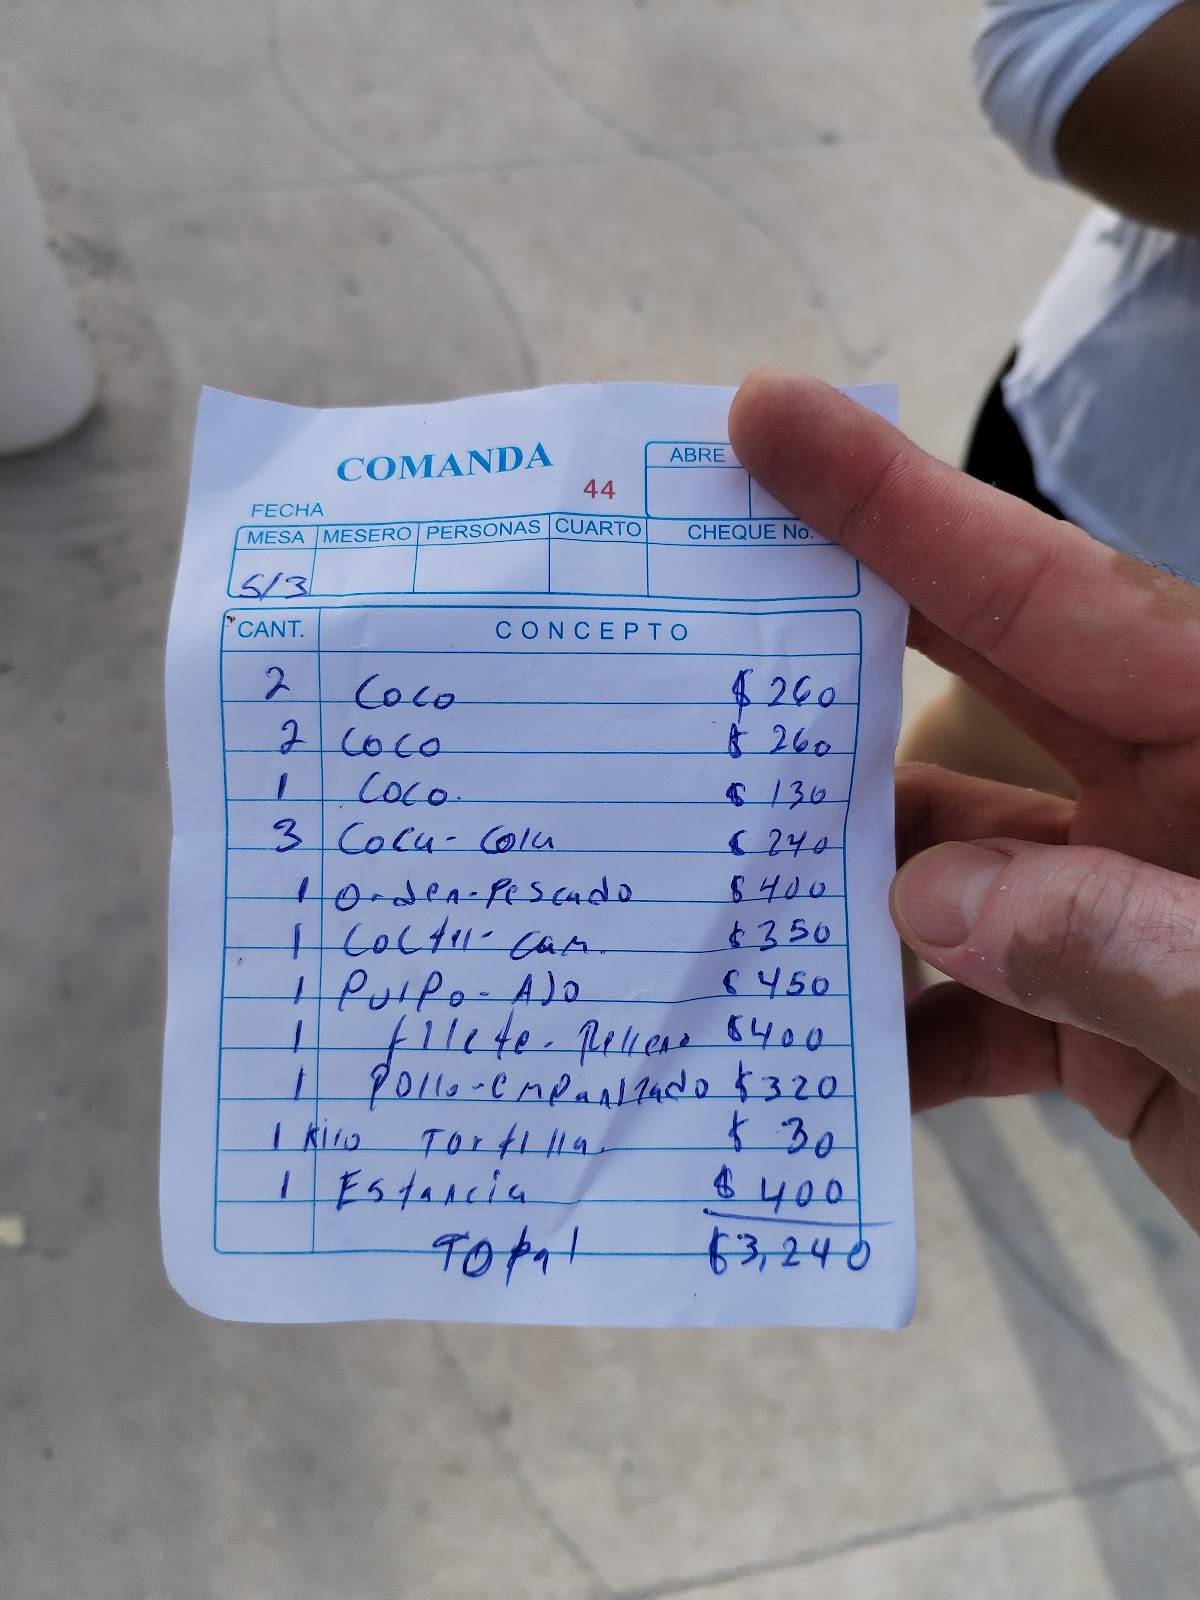 COMANDA
ABRE
44
FECHA
MESA MESERO PERSONAS CUARTO CHEQUE No.
5/3
CANT. CONCEPTO
2 Coco $ 260
2 Coco $ 260
1 Coco. $ 130
3 Coca-Cola $ 240
1 Orden-Pescado $ 400
1 Coctil-Cam. $ 350
1 Pulpo-AJO $ 450
1 fllete-Relleno $400
1 Pollo-empanizado $ 320
1 Kilo Tortilla. $ 30
1 Estancia $ 400
Total $3,240